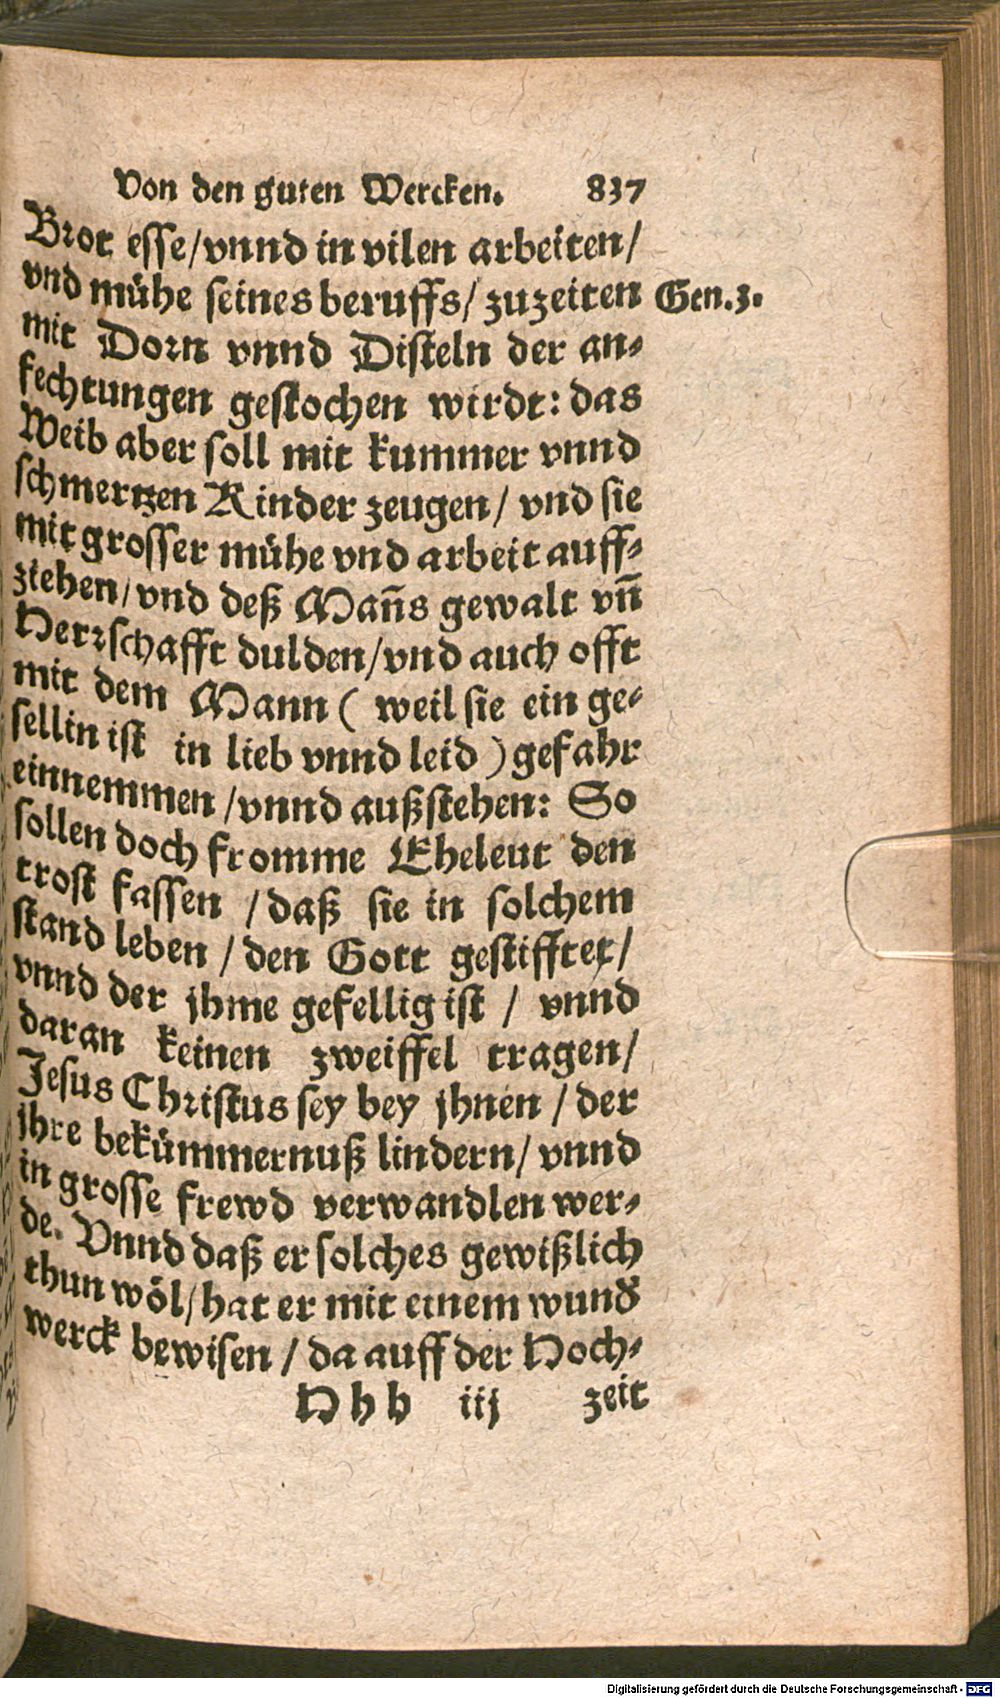 Von den guten Wercken. 837
Brot esse/vnnd in vilen arbeiten/
vnd mühe seines beruffs/ zuzeiten Gen.3.
mit Dorn vnnd Disteln der an-
fechtungen gestochen wirdt: das
Weib aber soll mit kummer vnnd
schmertzen Kinder zeugen/ vnd sie
mit grosser mühe vnd arbeit auff-
ziehen/vnd deß Mañs gewalt vñ
Herrschafft dulden/vnd auch offt
mit dem Mann ( weil sie ein ge-
sellin ist in lieb vnnd leid ) gefahr
einnemmen /vnnd außstehen: So
sollen doch fromme Eheleut den
trost fassen /daß sie in solchem
stand leben / den Gott gestifftet/
vnnd der jhme gefellig ist / vnnd
daran keinen zweiffel tragen/
Jesus Christus sey bey jhnen / der
jhre bekümmernuß lindern/ vnnd
in grosse frewd verwandlen wer-
de. Vnnd daß er solches gewißlich
thun wöl/hat er mit einem wund̃
werck bewisen / da auff der Hoch-
Hhh iij zeit
Digitalisierung gefördert durch die Deutsche Forschungsgemeinschaft - DFG